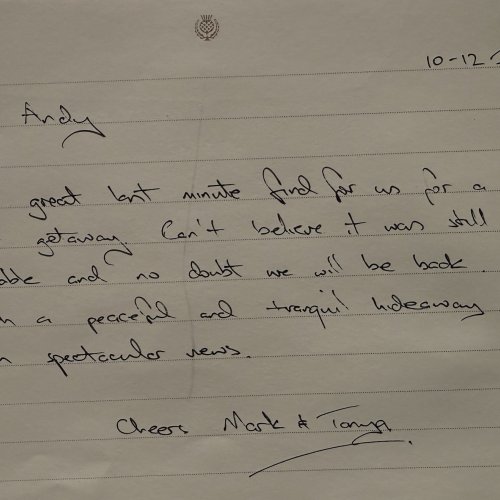 10-12
Andy
great last minute find for us for a
getaway. Can't believe it was still
able and no doubt we will be back.
a peaceful and tranquil hideaway
spectacular views.
Cheers Mark & Tanya